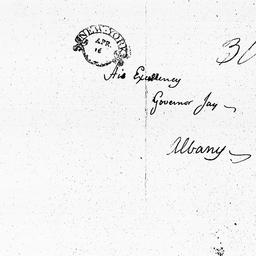 NEW-YORK
APR.
16
30
His Excellency
Governor Jay
Albany